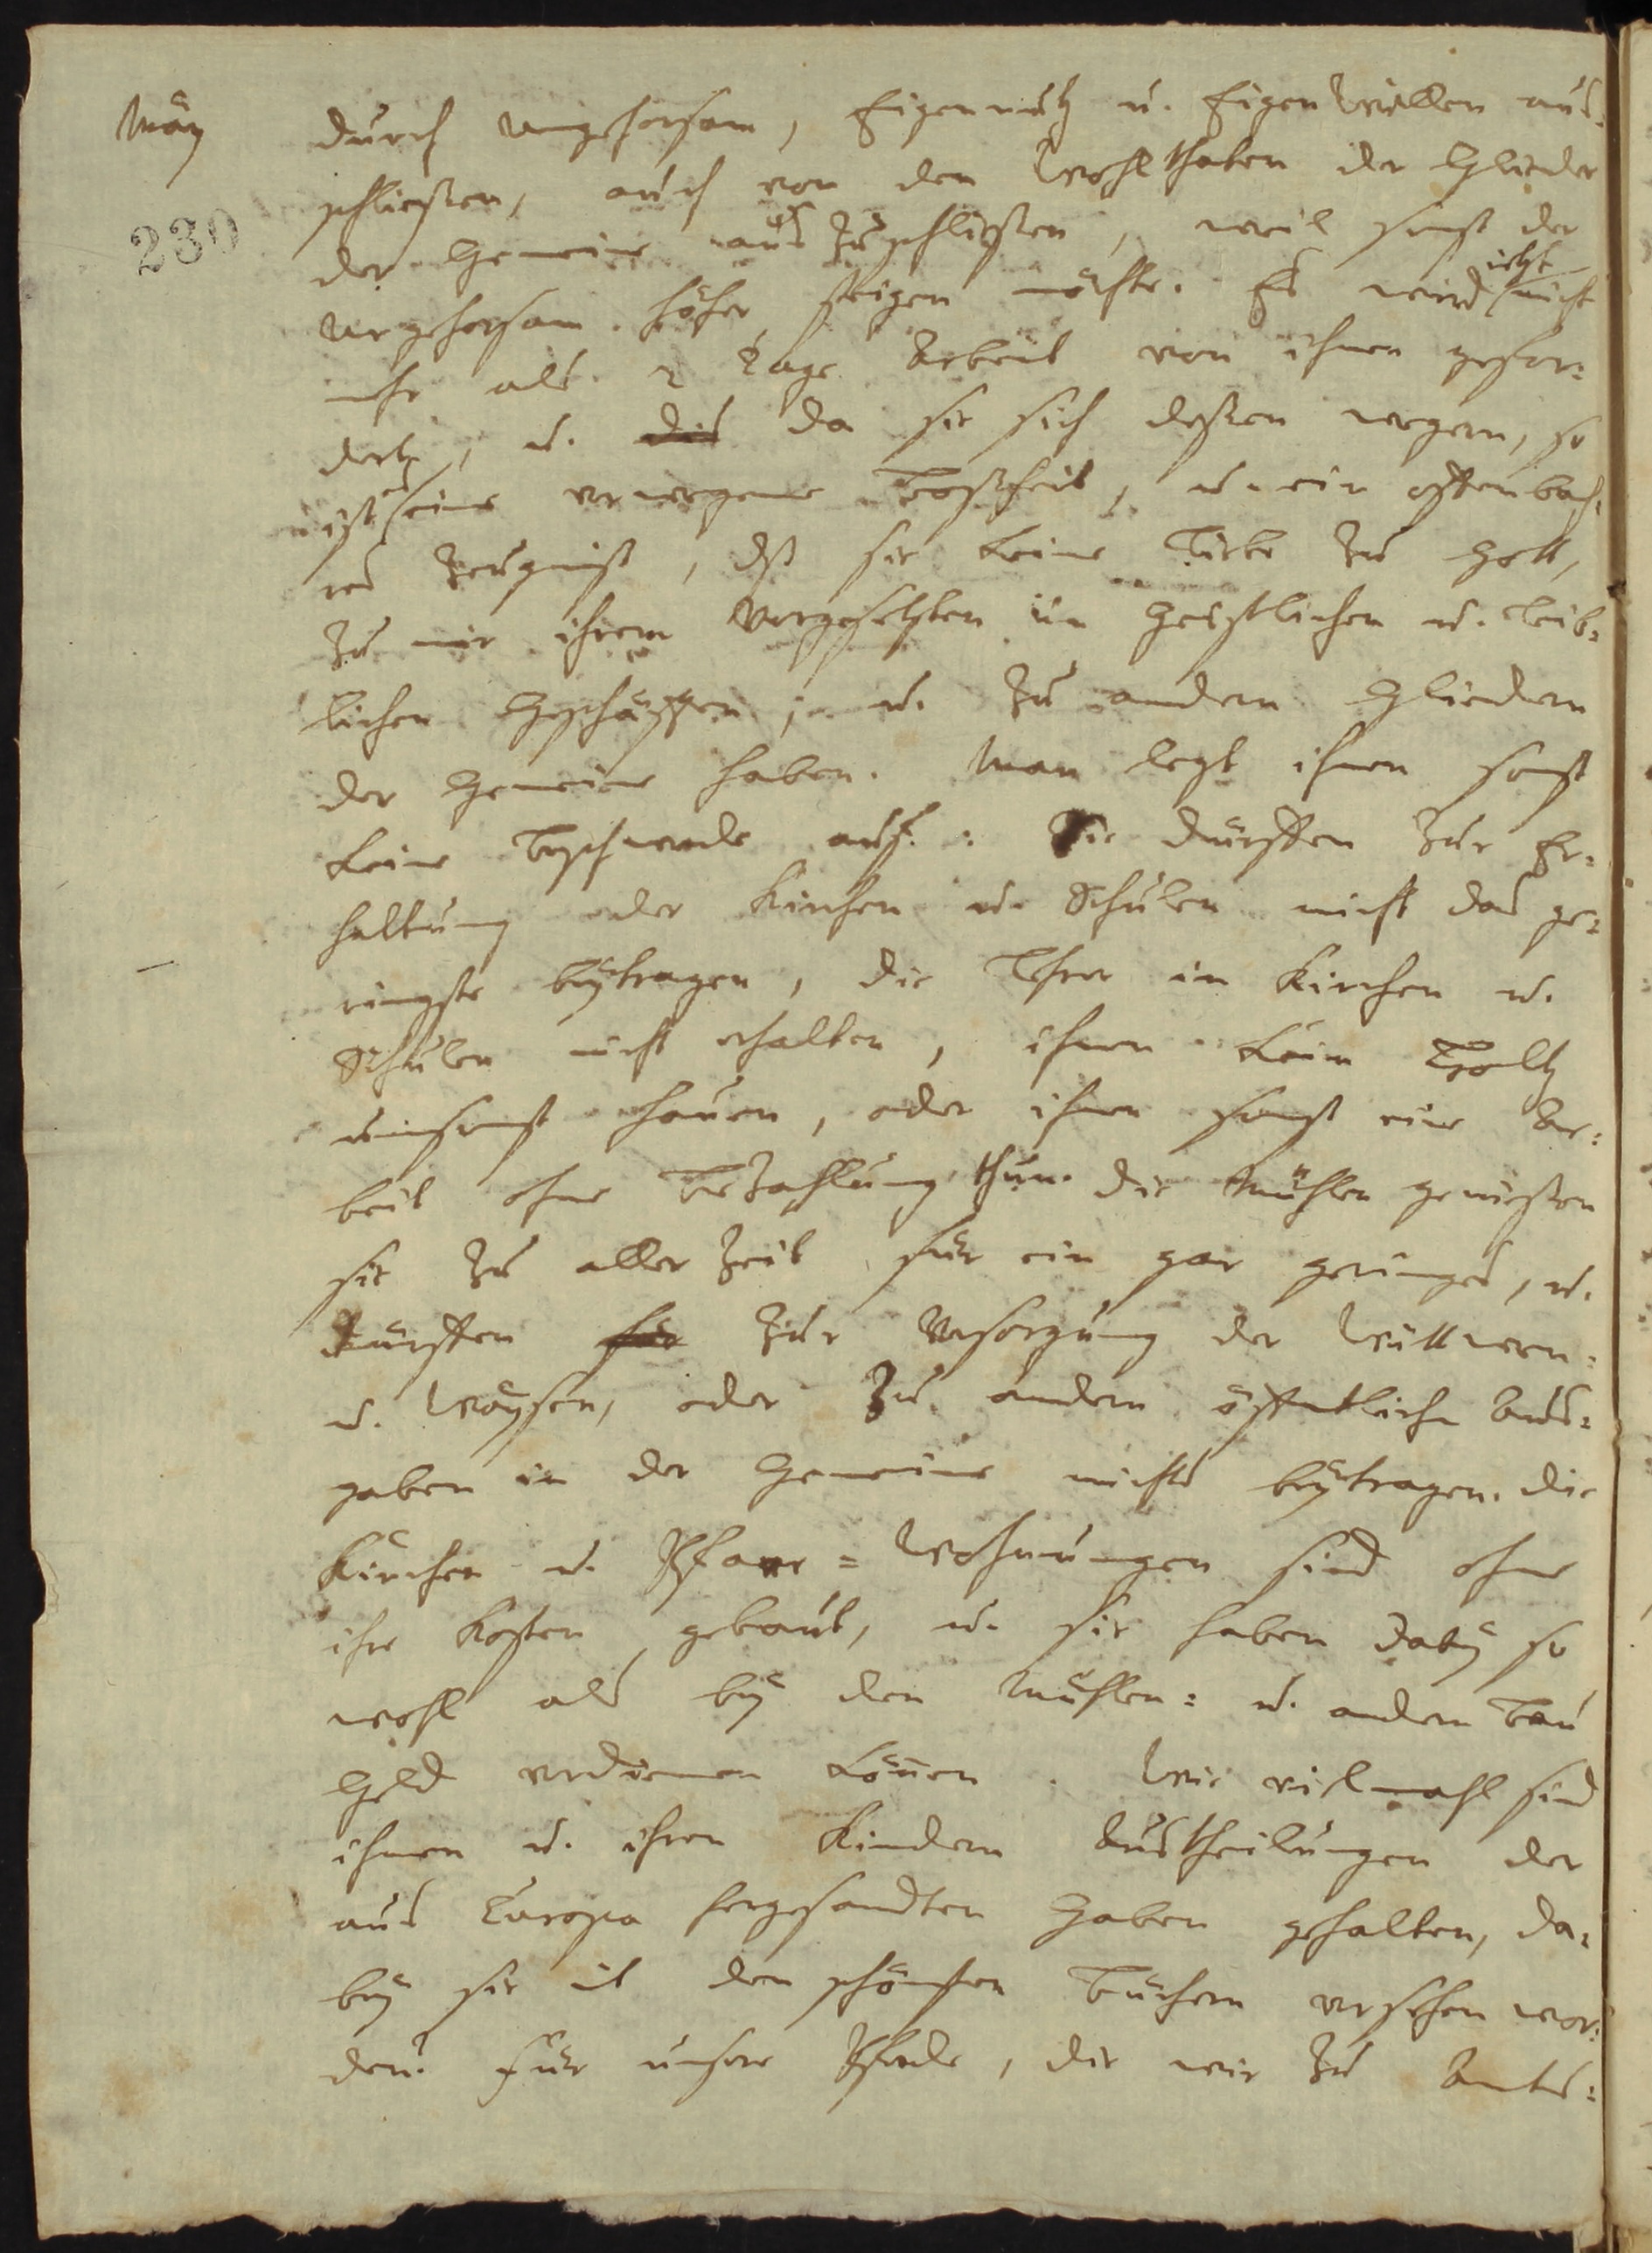 May
230
durch ungehorsam, Eigennutz u. Eigen Willen aus-
schließen, auch von den Wohlthaten der Glieder
der Gemeine auszuschließen, weil sonst der
ungehorsam höher steigen möchte. Es wird jetzt nicht
mehr als 2 Tage Arbeit von ihnen gefor=
dert, u. die da sie sich deßen wegern, so
ist es eine verwegene Boßheit, u. ein offenbah-
res Zeugniß, dß sie keine Liebe zu Gott,
zu mir ihrem Vorgesetzten in Geistlichen u. Leib=
lichen Geschäfften, u. zu andern Gliedern
der Gemeine haben. Man legt ihnen sonst
keine Beschwerde auf: Sie dürffen zur Er=
haltung der Kirchen u. Schulen nicht das ge=
ringste beytragen, die Lehrer in Kirchen u.
Schulen nicht erhalten, ihnen kein Holtz
umsonst hauen, oder ihnen sonst eine Ar=
beit ohne Bezahlung thun. Die Mühlen genießen
sie zu aller Zeit für ein gar geringes, u.
dürffen für zur Versorgung der Wittwen=
u. Waysen, oder zu andern öffentliche Aus=
gaben in der Gemeine nichts beytragen. Die
Kirchen u. Pfarr=Wohnungen sind ohne
ihre Kosten gebaut, u. sie haben dabey so
wohl als bey den Mühlen= u. andern Bau
Geld verdienen können. Wie vielmahl sind
ihnen u. ihren Kindern Austheilungen der
aus Europa hergesandten Gaben gehalten, da=
bey sie mit den schönsten Büchern versehen wor=
den? Für unsere Pferde, die wir zu Amts=